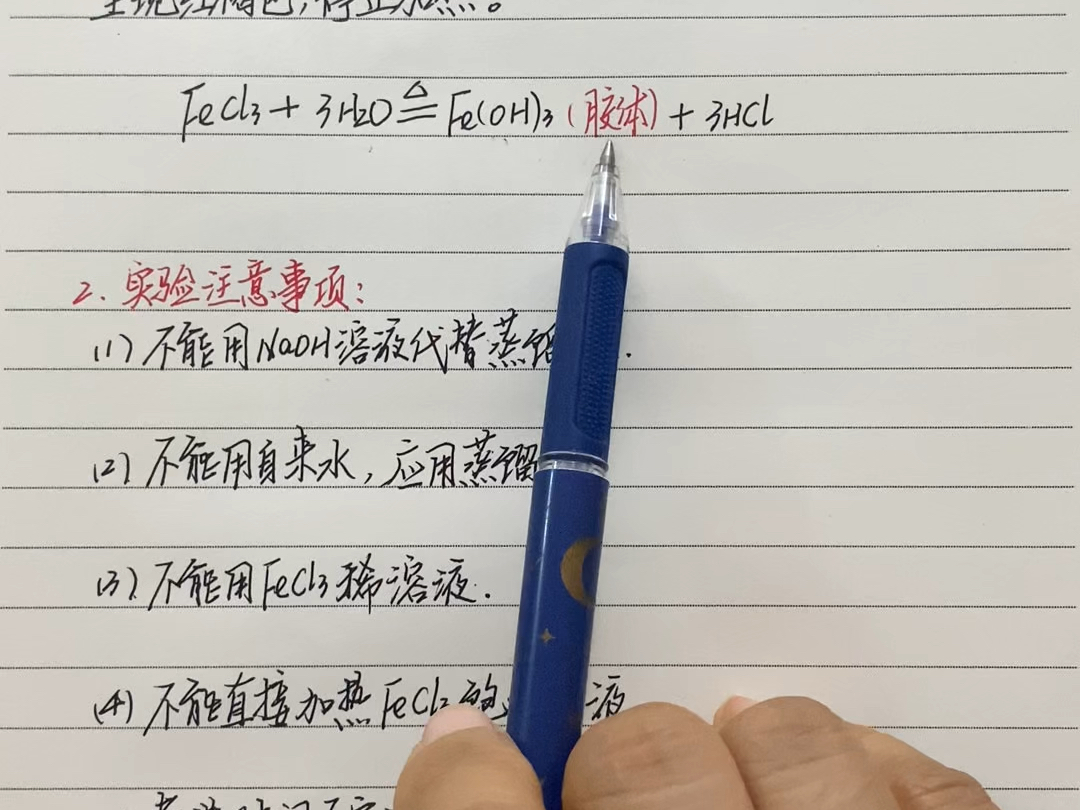 呈现红褐色,停止加热。
FeCl3 + 3H2O ≜ Fe(OH)3 (胶体) + 3HCl
2. 实验注意事项:
(1) 不能用NaOH溶液代替蒸馏.
(2) 不能用自来水,应用蒸馏
(3) 不能用FeCl3稀溶液.
(4) 不能直接加热FeCl3饱 液